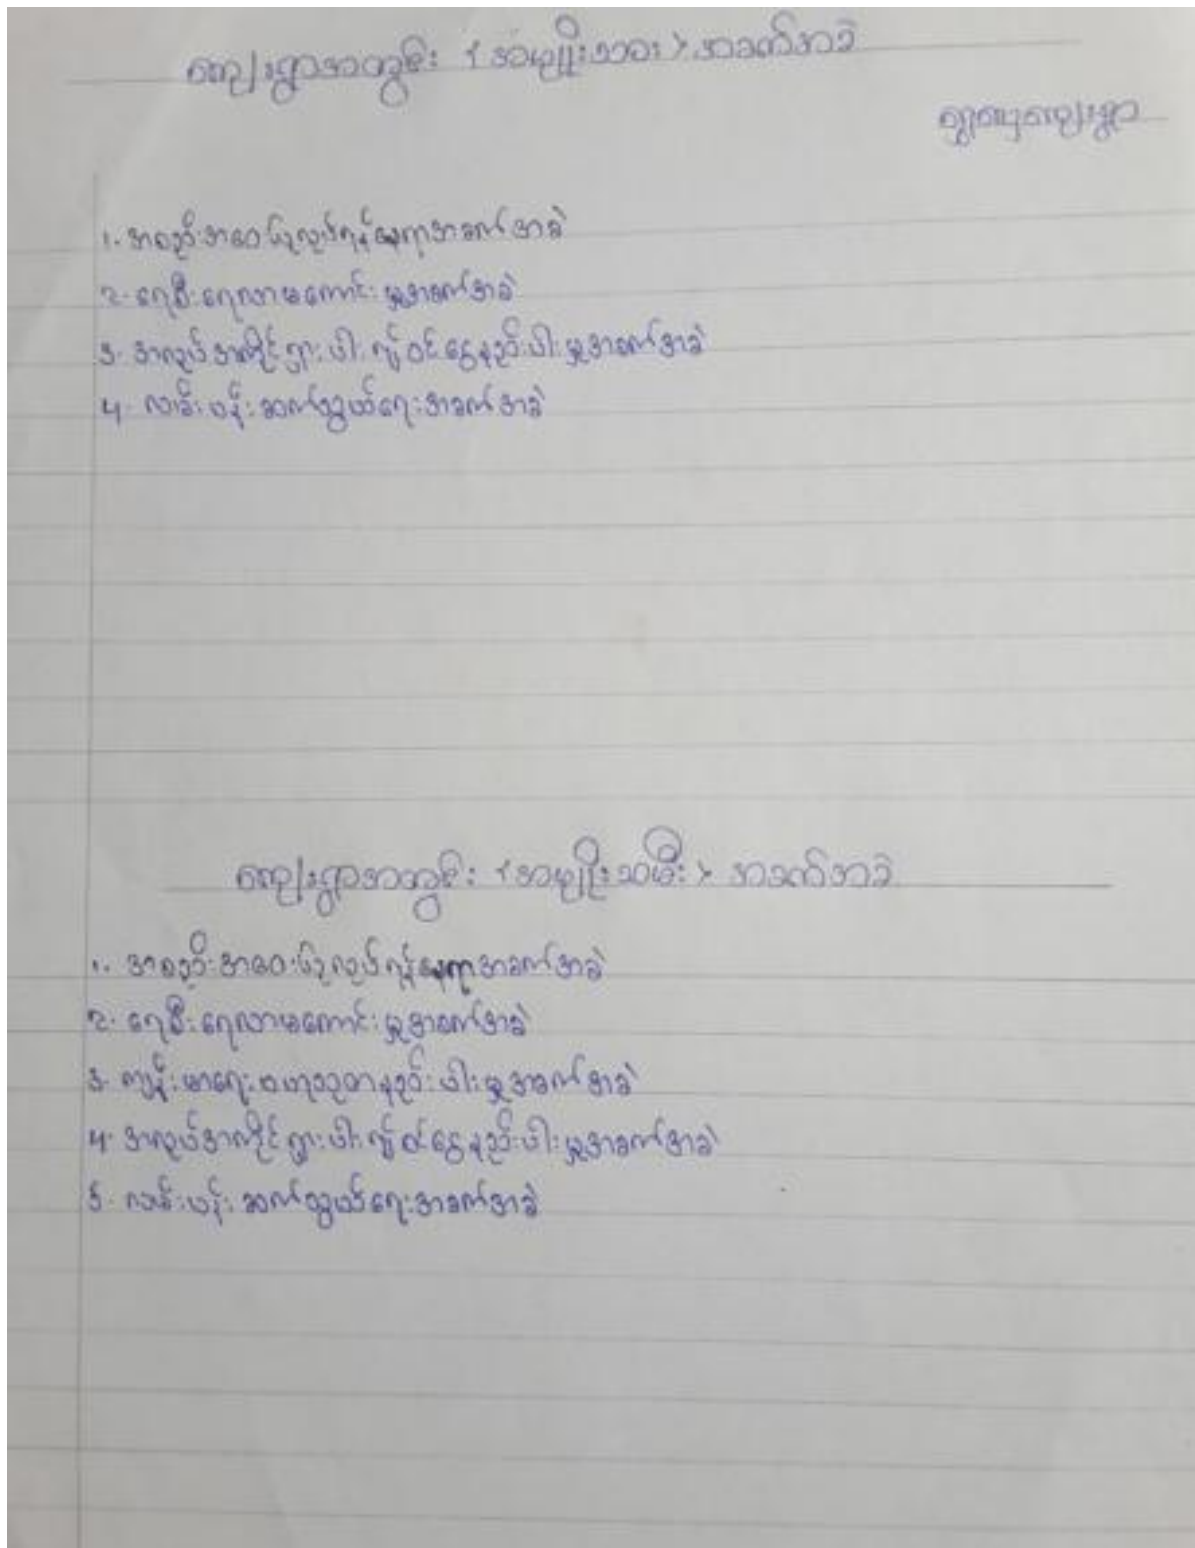 ကျေးရွာအတွင်း <အမျိုးသား> အခက်အခဲ
ရွာကျေးရွာ
1. အစည်းအဝေးပြုလုပ်ရန်နေရာအခက်အခဲ
2. ရေစီးရေလာမကောင်းမှုအခက်အခဲ
3. အလုပ်အကိုင်ရှားပါး၍ဝင်ငွေနည်းပါးမှုအခက်အခဲ
4. လမ်းပန်းဆက်သွယ်ရေးအခက်အခဲ
ကျေးရွာအတွင်း <အမျိုးသမီး> အခက်အခဲ
1. အစည်းအဝေးပြုလုပ်ရန်နေရာအခက်အခဲ
2. ရေစီးရေလာမကောင်းမှုအခက်အခဲ
3. ကျန်းမာရေးဗဟုသုတနည်းပါးမှုအခက်အခဲ
4. အလုပ်အကိုင်ရှားပါး၍ဝင်ငွေနည်းပါးမှုအခက်အခဲ
5. လမ်းပန်းဆက်သွယ်ရေးအခက်အခဲ